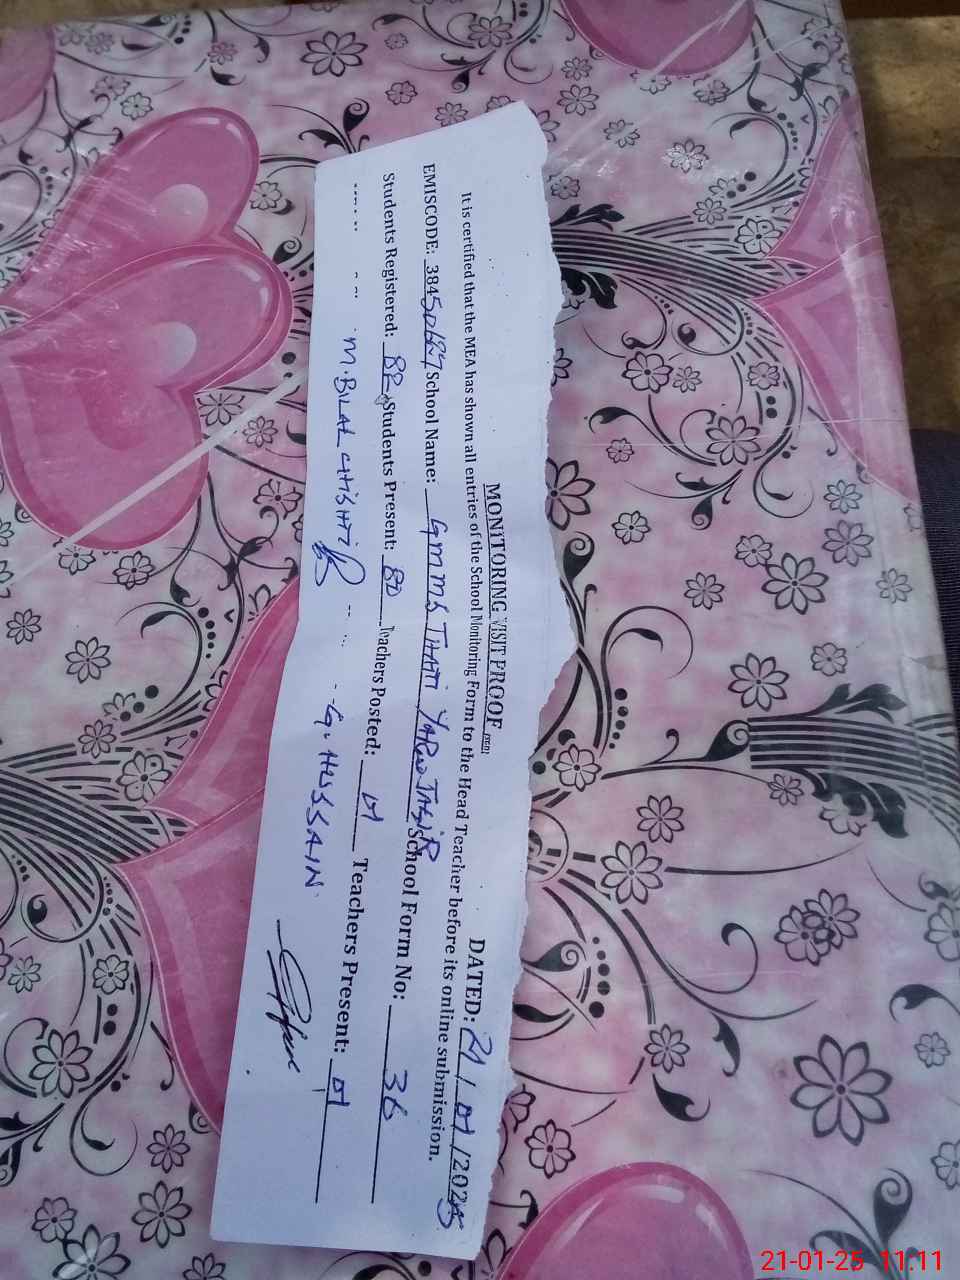 MONITORING VISIT PROOF
DATED: 21 / 01 / 2025
It is certified that the MEA has shown all entries of the School Monitoring Form to the Head Teacher before its online submission.
EMISCODE: School Name: GMMS THATI YARU JASIR School Form No: 36
Students Registered: 82 Students Present: 80 Teachers Posted: 01 Teachers Present: 01
M. BILAL CHISHTI G. HUSSAIN
21-01-25 11:11